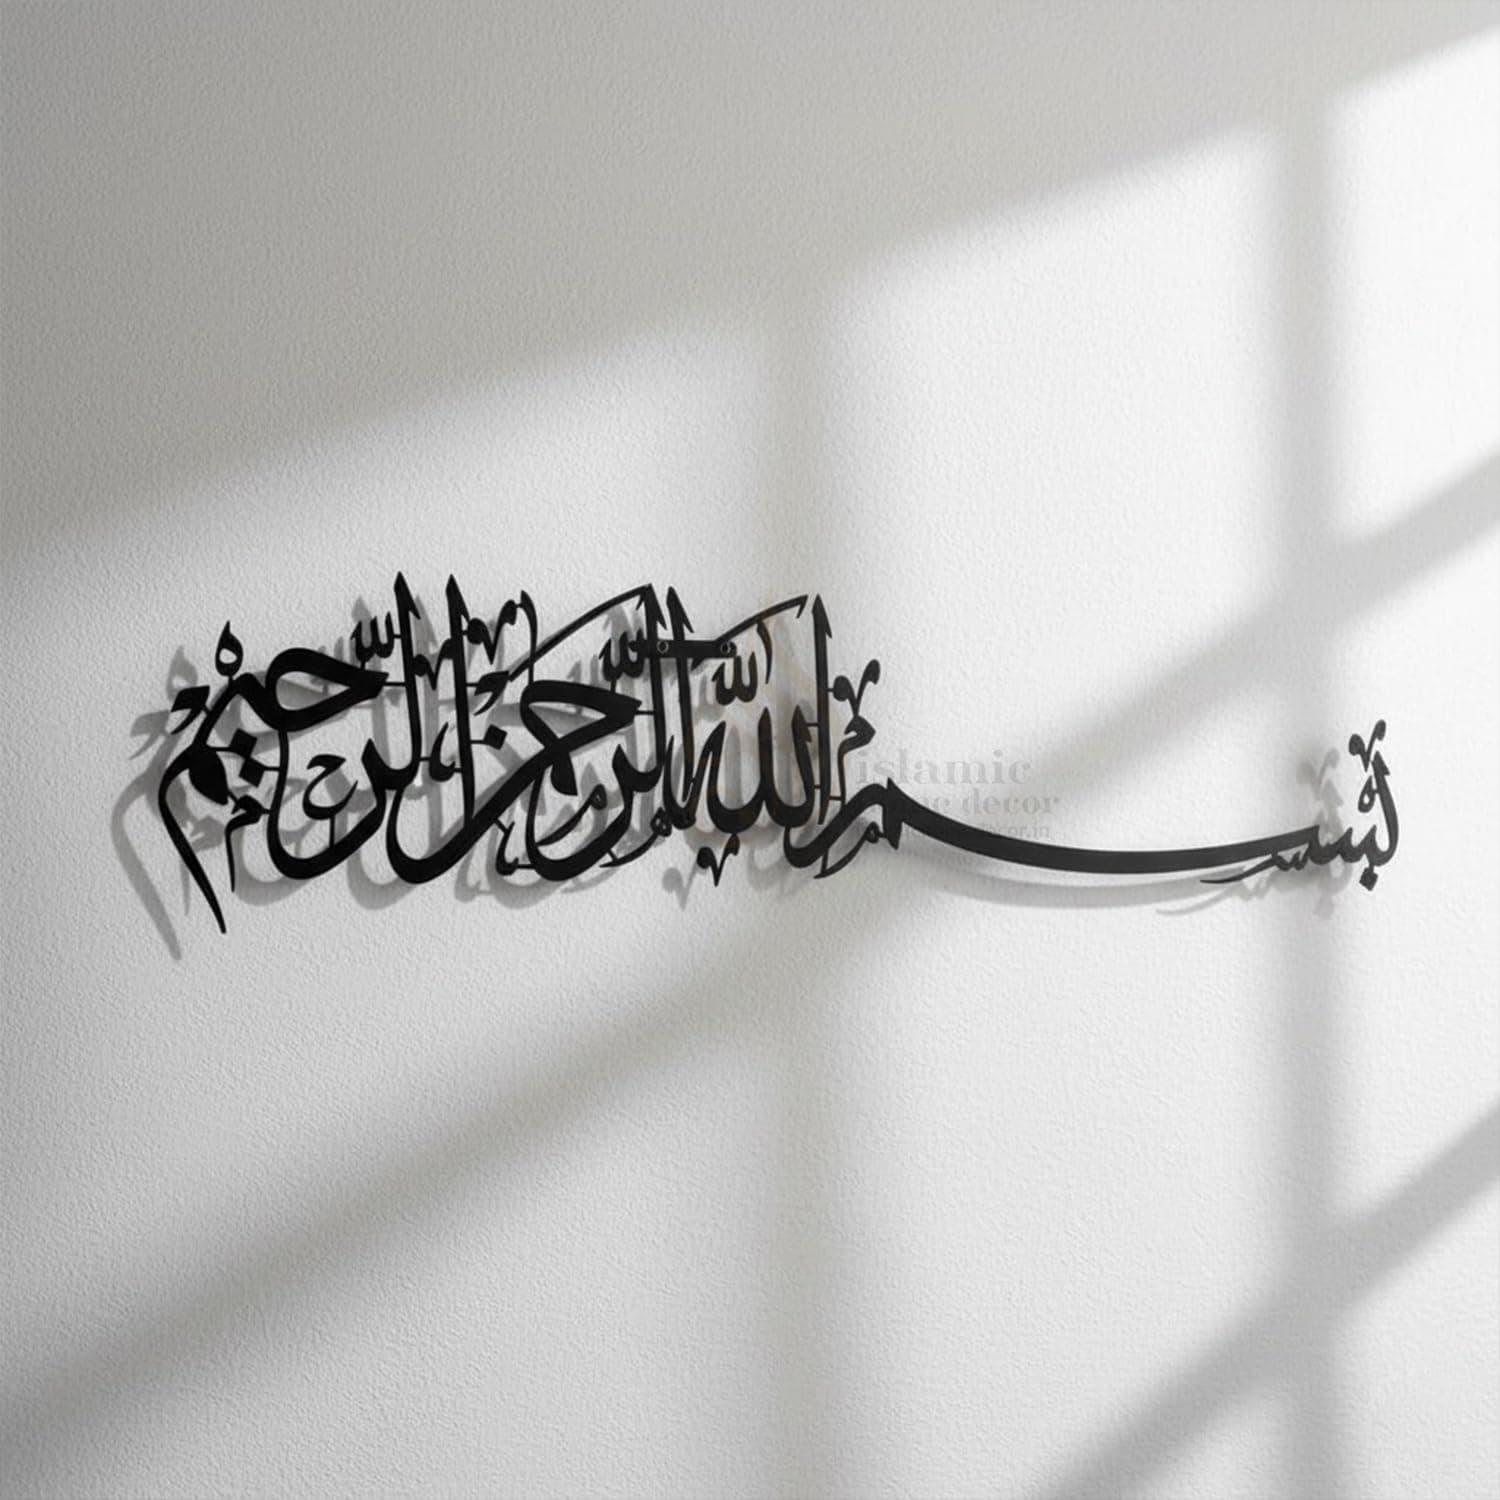 بسم الله الرحمن الرحيم
islamic
decor
decor.in